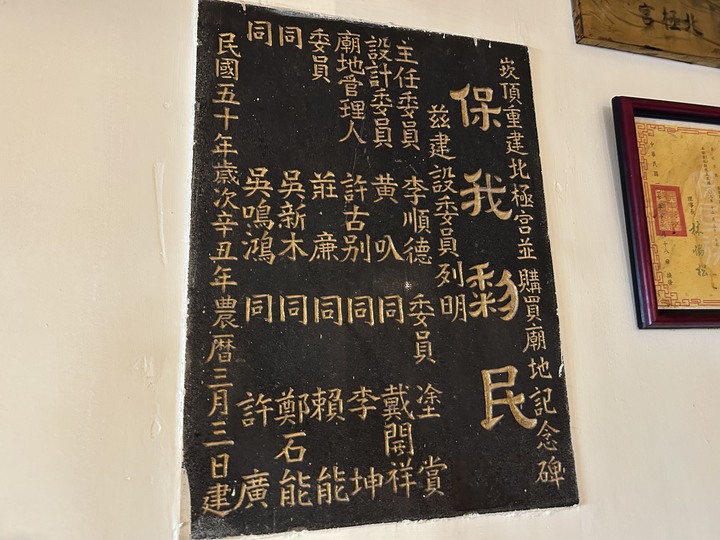 崁頂重建北極宮並購買廟地記念碑
保我黎民
茲建設委員列明
主任委員 李順德 委員 塗賞
設計委員 黃叺 同 戴開祥
廟地管理人 許古別 同 李坤
委員 莊廉 同 賴能
同 吳新木 同 鄭石能
同 吳鳴鴻 同 許廣
民國五十年歲次辛丑年農曆三月三日建
北極宮
中華民國